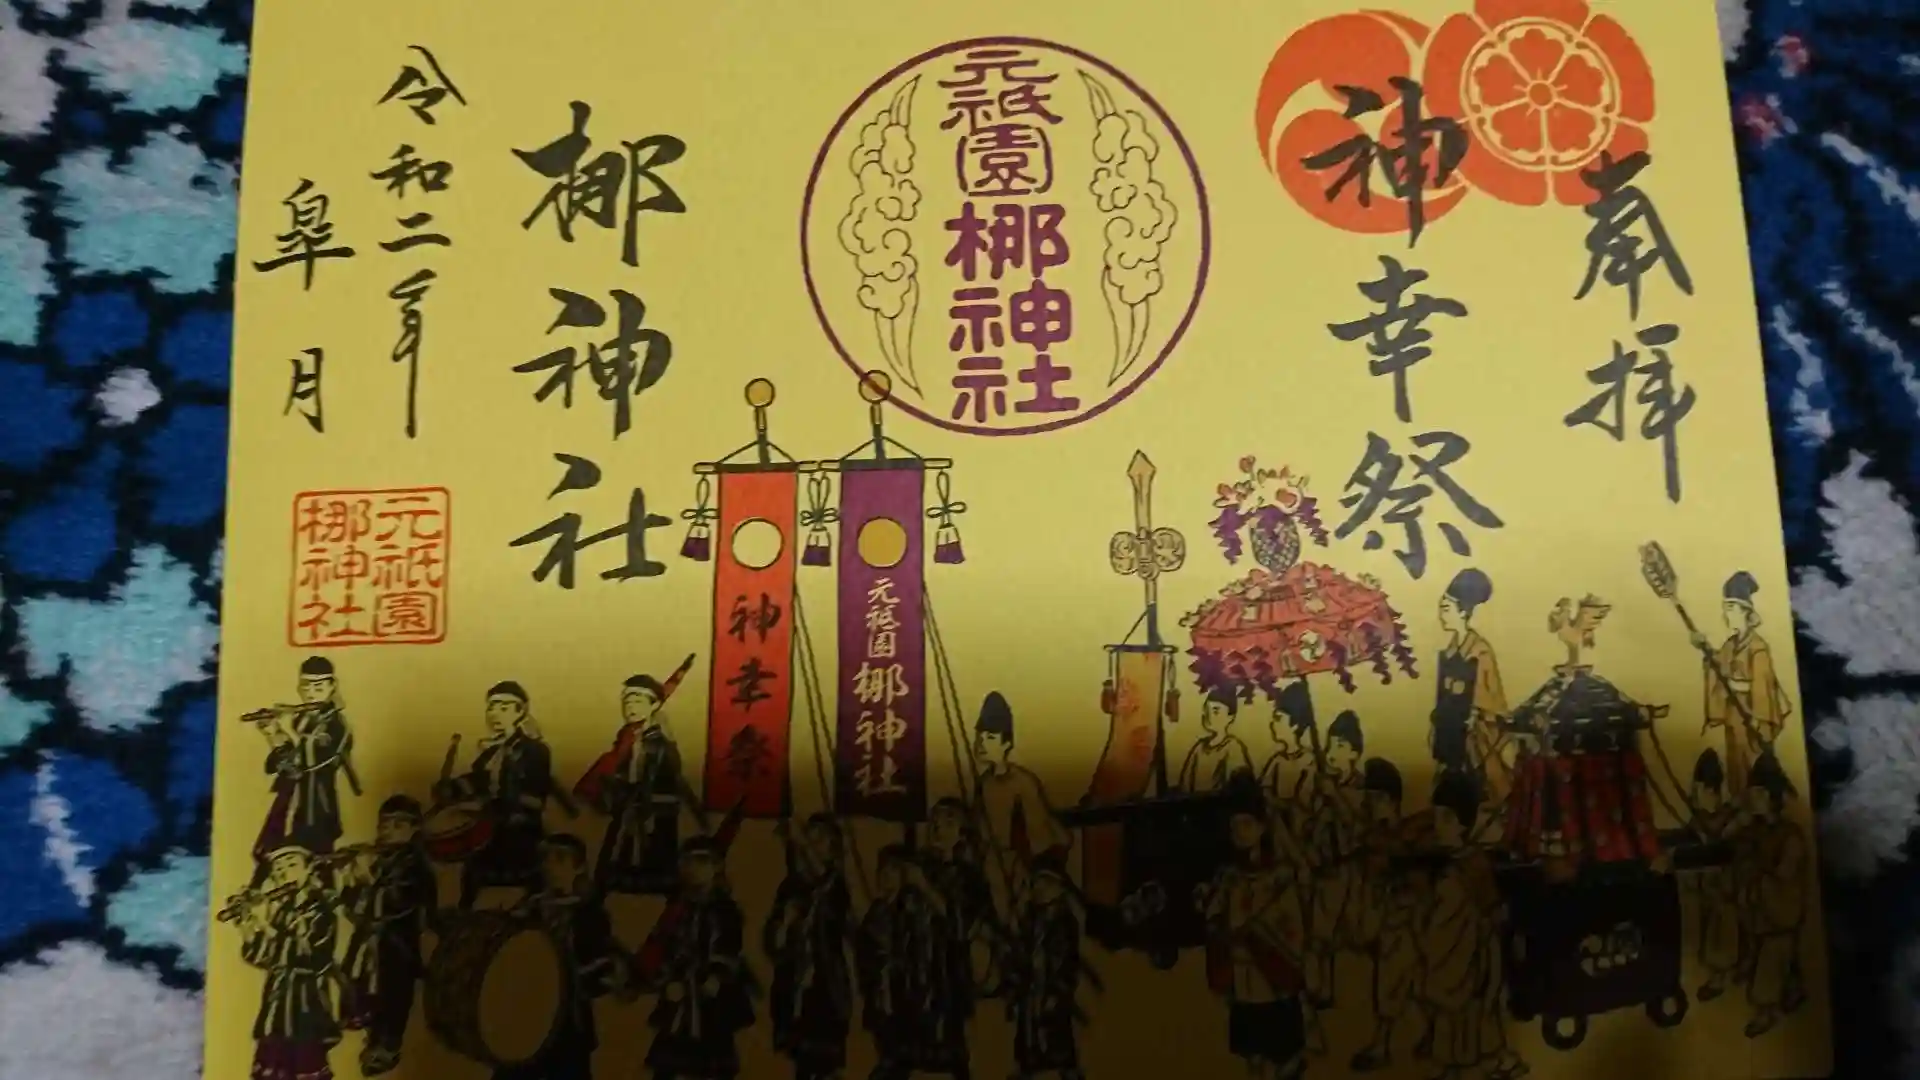 奉拝
神幸祭
元祇園梛神社
梛神社
令和二年
皐月
元祇園
梛神社
神幸祭
元祇園梛神社